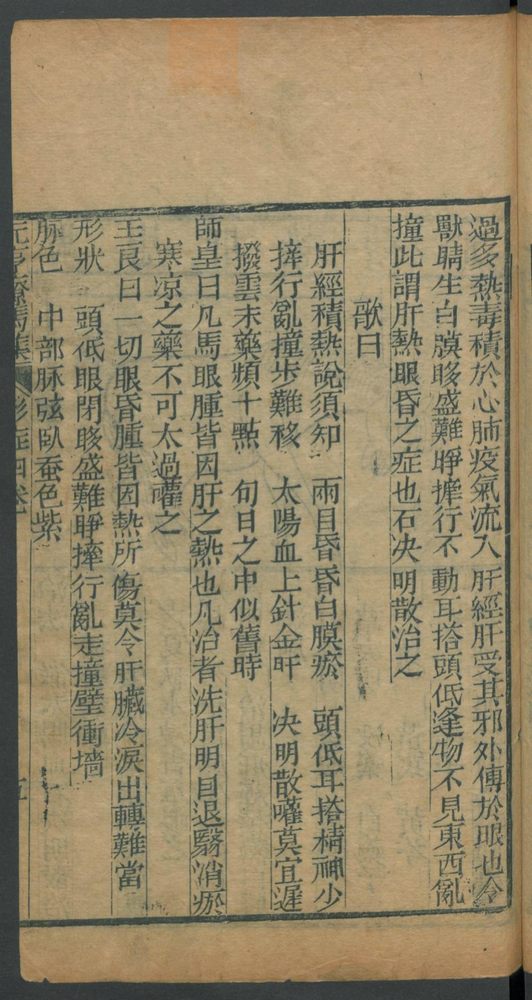 過多熱毒積於心肺疫氣流入肝經肝受其邪外傳於眼也令
獸睛生白膜眵盛難睜摔行不動耳搭頭低逢物不見東西亂
撞此謂肝熱眼昏之症也石决明散治之
歌曰
肝經積熱說須知 兩目昏昏白膜瘀 頭低耳搭精神少
摔行亂撞步難移 太陽血上針金平 决明散嚾莫宜遲
撥雲末藥頻十點 旬日之中似舊時
師皇曰凡馬眼腫皆因肝之熱也凡治者洗肝明目退翳消瘀
寒凉之藥不可太過嚾之
王良曰一切眼昏腫皆因熱所傷莫令肝臟冷淚出轉難當
形狀 頭低眼閉眵盛難睜摔行亂走撞壁衝墻
脉色 中部脉弦臥蚕色紫
元亨療馬集 形症四